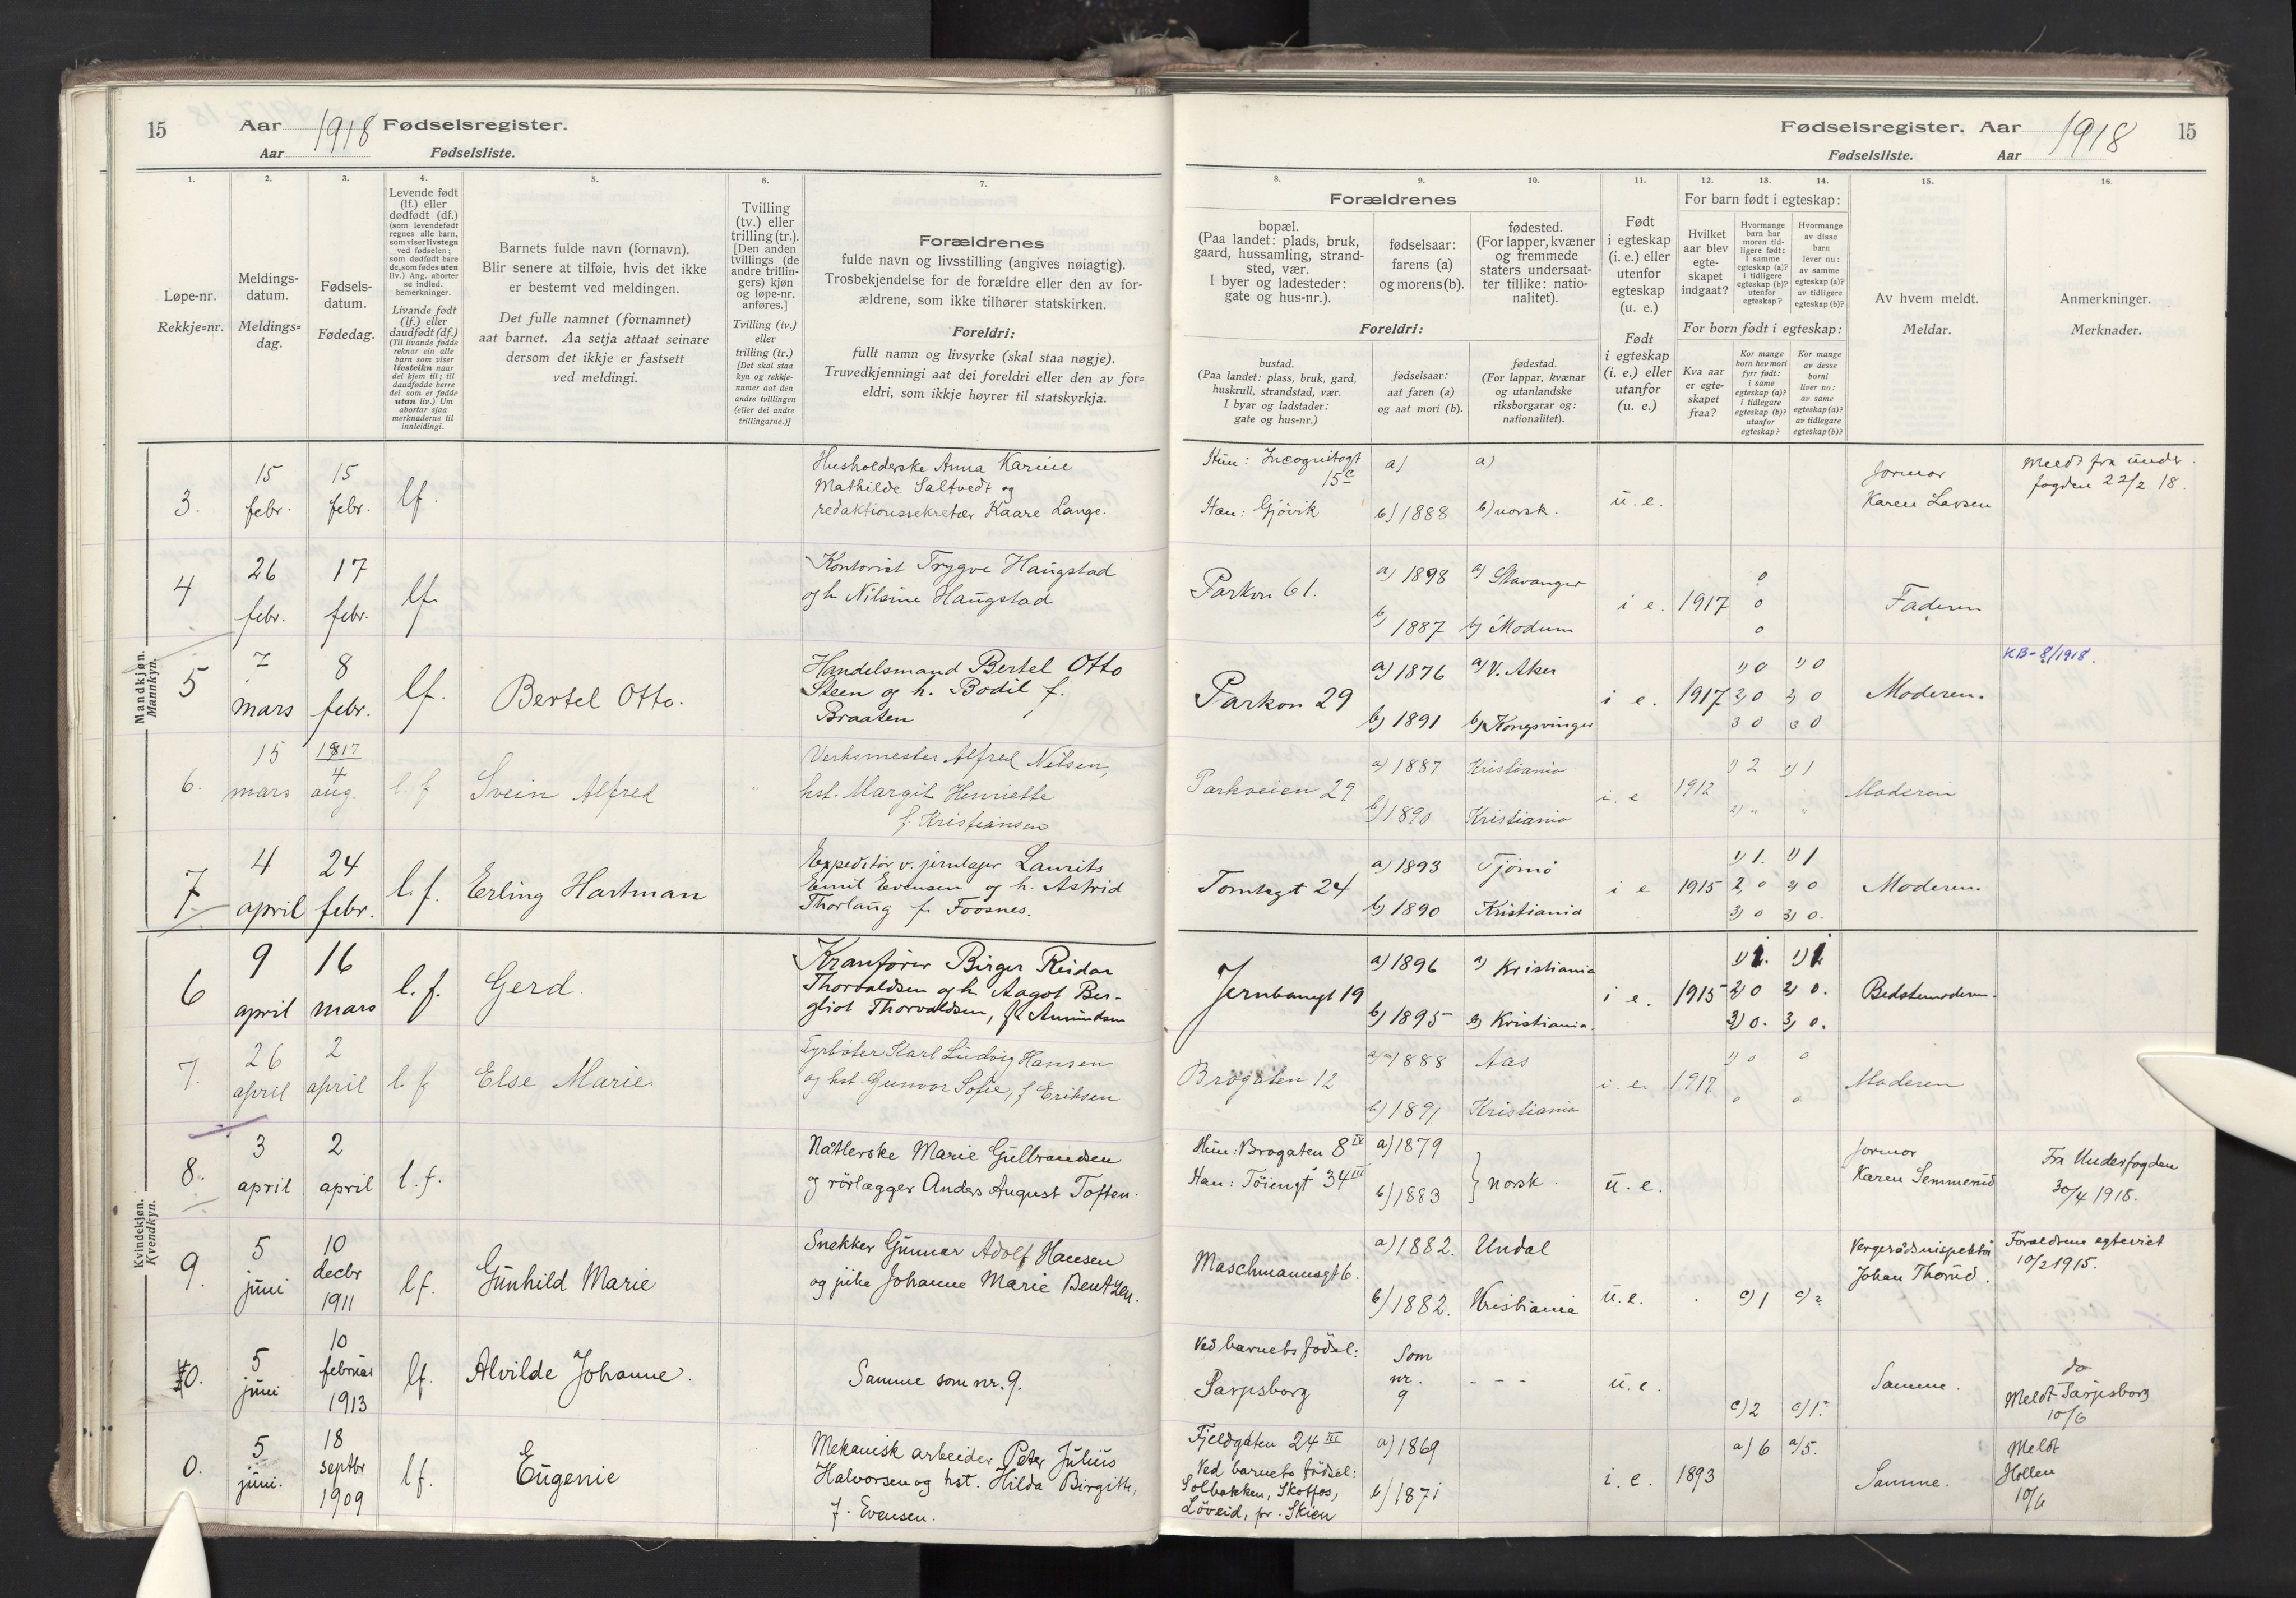 15
Aar 1918 Fødselsregister.
Aar Fødselsliste.
1.
2.
3.
4.
5.
6.
7.
Løpe-nr.
Rekkje=nr.
Meldings-
datum.
Meldings=
dag.
Fødsels-
datum.
Fødedag.
Levende født
(lf.) eller
dødfødt (df.)
(som levendefødt
regnes alle barn,
som viser livstegn
ved fødselen;
som dødfødt bare
de, som fødes uten
liv.) Ang. aborter
se indled.
bemerkninger.
Livande født
(lf.) eller
daudfødt (df.)
(Til livande fødde
reknar ein alle
barn som viser
livsteikn naar
dei kjem til; til
daudfødde berre
dei som er fødde
utan liv.) Um
abortar sjaa
merknaderne til
innleidingi.
Barnets fulde navn (fornavn).
Blir senere at tilføie, hvis det ikke
er bestemt ved meldingen.
Det fulle namnet (fornamnet)
aat barnet. Aa setja attaat seinare
dersom det ikkje er fastsett
ved meldingi.
Tvilling
(tv.) eller
trilling (tr.).
[Den anden
tvillings (de
andre trillin-
gers) kjøn
og løpe-nr.
anføres.]
Tvilling (tv.)
eller
trilling (tr.)
[Det skal staa
kyn og rekkje-
numer aat den
andre tvillingen
(eller dei andre
trillingarne.)]
Forældrenes
fulde navn og livsstilling (angives nøiagtig).
Trosbekjendelse for de forældre eller den av for-
ældrene, som ikke tilhører statskirken.
Foreldri:
fullt namn og livsyrke (skal staa nøgje).
Truvedkjenningi aat dei foreldri eller den av for=
eldri, som ikkje høyrer til statskyrkja.
Mandkjøn.
Mannkyn.
3.
15
febr.
15
febr.
lf.
Husholderske Anna Karine
Mathilde Saltvedt og
redaktionssekretær Kaare Lange.
4
26
febr.
17
febr.
lf.
Kontorist Trygve Haugstad
og h Nilsine Haugstad
5
7
mars
8
febr.
lf.
Bertel Otto.
Handelsmand Bertel Otto
Steen og h. Bodil f.
Braaten
6.
15
mars
1917
4
aug.
l. f
Svein Alfred
Verksmester Alfred Nilsen,
hst. Margit Henriette
f. Kristiansen
7
4
april
24
febr.
l. f.
Erling Hartman
Expeditør v. jernlager Laurits
Emil Evensen og h. Astrid
Thorlaug f. Foosnes.
Kvindekjøn.
Kvendkyn.
6
9
april
16
mars
l. f.
Gerd
Kranfører Birger Reidar
Thorvaldsen og h Aagot Ber-
gliot Thorvaldsen, f. Amundsen
7.
26
april
2
april
l. f.
Else Marie
Fyrbøter Karl Ludvig Hansen
og hst. Gunvor Sofie, f Eriksen
8.
3
april
2
april
l. f.
Nåtlerske Marie Gulbrandsen
og rørlægger Anders August Toften.
9.
5
juni
10
decbr
1911
lf.
Gunhild Marie
Snekker Gunnar Adolf Hansen
og pike Johanne Marie Bentzen.
10.
5
juni
10
februar
1913
lf.
Alvilde Johanne.
Samme som nr. 9.
0.
5
juni.
18
septbr
1909
lf.
Eugenie
Mekanisk arbeider Peter Julius
Halvorsen og hst. Hilda Birgitte,
f. Evensen.
Fødselsregister. Aar 1918
15
Fødselsliste. Aar
8.
9.
10.
11.
12.
13.
14.
15.
16.
Forældrenes
bopæl.
(Paa landet: plads, bruk,
gaard, hussamling, strand-
sted, vær.
I byer og ladesteder:
gate og hus-nr.).
fødselsaar:
farens (a)
og morens (b).
fødested.
(For lapper, kvæner
og fremmede
staters undersaat-
ter tillike: natio-
nalitet).
Foreldri:
bustad.
(Paa landet: plass, bruk, gard,
huskrull, strandstad, vær.
I byar og ladstader:
gate og hus=nr.)
fødselsaar:
aat faren (a)
og aat mori (b).
fødestad.
(For lappar, kvænar
og utanlandske
riksborgarar og:
nationalitet).
Født
i egteskap
(i. e.) eller
utenfor
egteskap
(u. e.)
Født
i egteskap
(i. e.) eller
utanfor
(u. e.)
For barn født i egteskap:
Hvilket
aar blev
egte-
skapet
indgaat?
Hvormange
barn har
moren tid-
ligere født:
i samme
egteskap (a)?
i tidligere
egteskap (b)?
utenfor
egteskap?
Hvormange
av disse
barn
lever nu:
av samme
egteskap (a)?
av tidligere
egteskap (b)?
For born født i egteskap:
Kva aar
er egte=
skapet
fraa?
Kor mange
born hev mori
fyrr født:
i same
egteskap (a)?
i tidlegare
egteskap (b)?
utanfor
egteskap?
Kor mange
av desse
borni
liver no:
av same
egteskap (a)?
av tidlegare
egteskap (b)?
Av hvem meldt.
Meldar.
Anmerkninger.
Merknader.
Hun: Incognitogt
15 c
Han: Gjøvik
a)
b) 1888
a)
b) norsk.
u. e.
Jormor
Karen Larsen
Meldt fra under
fogden 22/2 18.
Parkvn 61.
a) 1898
b) 1887
a) Stavanger
b) Modum
i e.
1917
0
0
0
Faderen
Parkvn 29
a) 1876
b) 1891
a) V. Aker
b) Kongsvinger
i e.
1917
1) 0 1) 0
2) 0 2) 0
3 0 3) 0
Moderen.
KB-8/1918.
Parkveien 29
a) 1887
b) 1890
Kristiania
Kristiania
i. e
1912
1) 2 1) 1
2) " "
Moderen
Tomtegt 24
a) 1893
b) 1890
Tjømø
Kristiania
i e
1915
1) 1. 1) 1
2) 0 2) 0
3) 0 3) 0.
Moderen.
Jernbanegt 19
a) 1896
b) 1895
a) Kristiania
b) Kristiania.
i e.
1915
1) 1. 1) 1
2) 0 2) 0.
3) 0. 3) 0.
Bedstemoderen.
Brogaten 12
a) 1888
b) 1891
Aas
Kristiania
i. e.
1917
1) 0 0
0 0
Moderen
Hun: Brogaten 8 IV
Han: Tøiengt 34 III
a) 1879
b) 1883
norsk.
u. e.
Jormor
Karen Semmerud
Fra Underfogden
30/4 1918.
Maschmannsgt 6.
a) 1882.
b) 1882.
Undal
Kristiania
u. e.
c) 1 c) ?
Vergerådsinspektør
Johan Thorud.
Forældrene egteviet
10/2 1915.
Ved barnets fødsel:
Sarpsborg
Som
nr.
9
- - -
u. e.
c) 2 c) 1.
Samme.
do
Meldt Sarpsborg
10/6
Fjeldgaten 24 III
Ved barnets fødsel:
Solbakken, Skotfos,
Løveid, pr. Skien
a) 1869
b) 1871
i. e.
1893
a) 6 a) 5.
Samme.
Meldt
Hollen
10/6